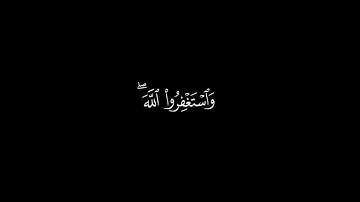 وَٱسۡتَغۡفِرُواْ ٱللَّهَۖ